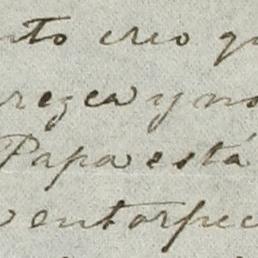 nto creo qu
rezca y no
Papa está
entorpec